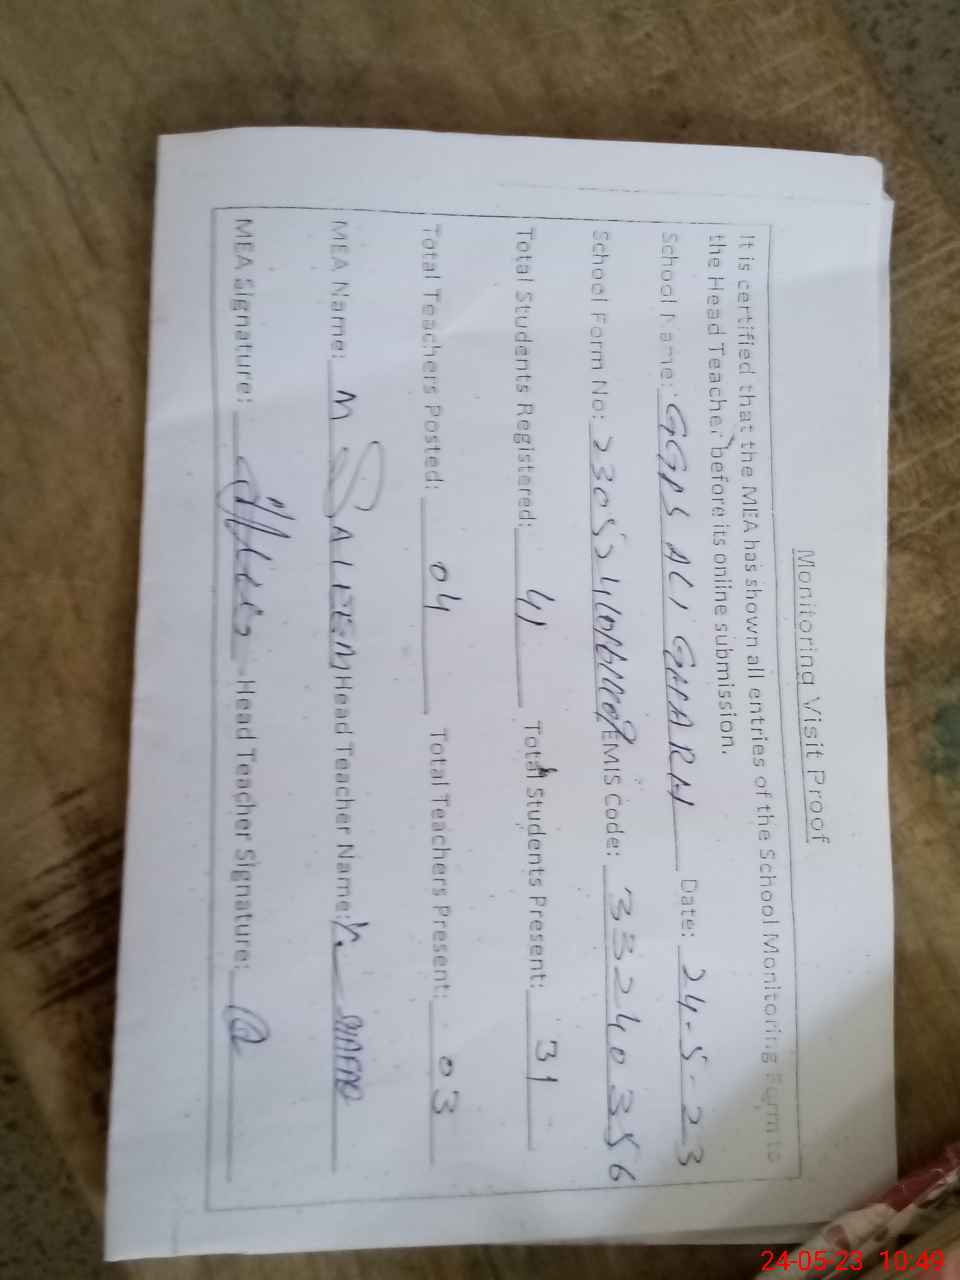 Monitoring Visit Proof
It is certified that the MEA has shown all entries of the School Monitoring Form to
the Head Teacher before its online submission.
School Name: GGPS ALI GHARH Date: 24-5-23
School Form No: EMIS Code: 33240356
Total Students Registered: 41 Total Students Present: 31
Total Teachers Posted: 04 Total Teachers Present: 03
MEA Name: M SALEEM Head Teacher Name:
MEA Signature: Head Teacher Signature:
24-05-23 10:49